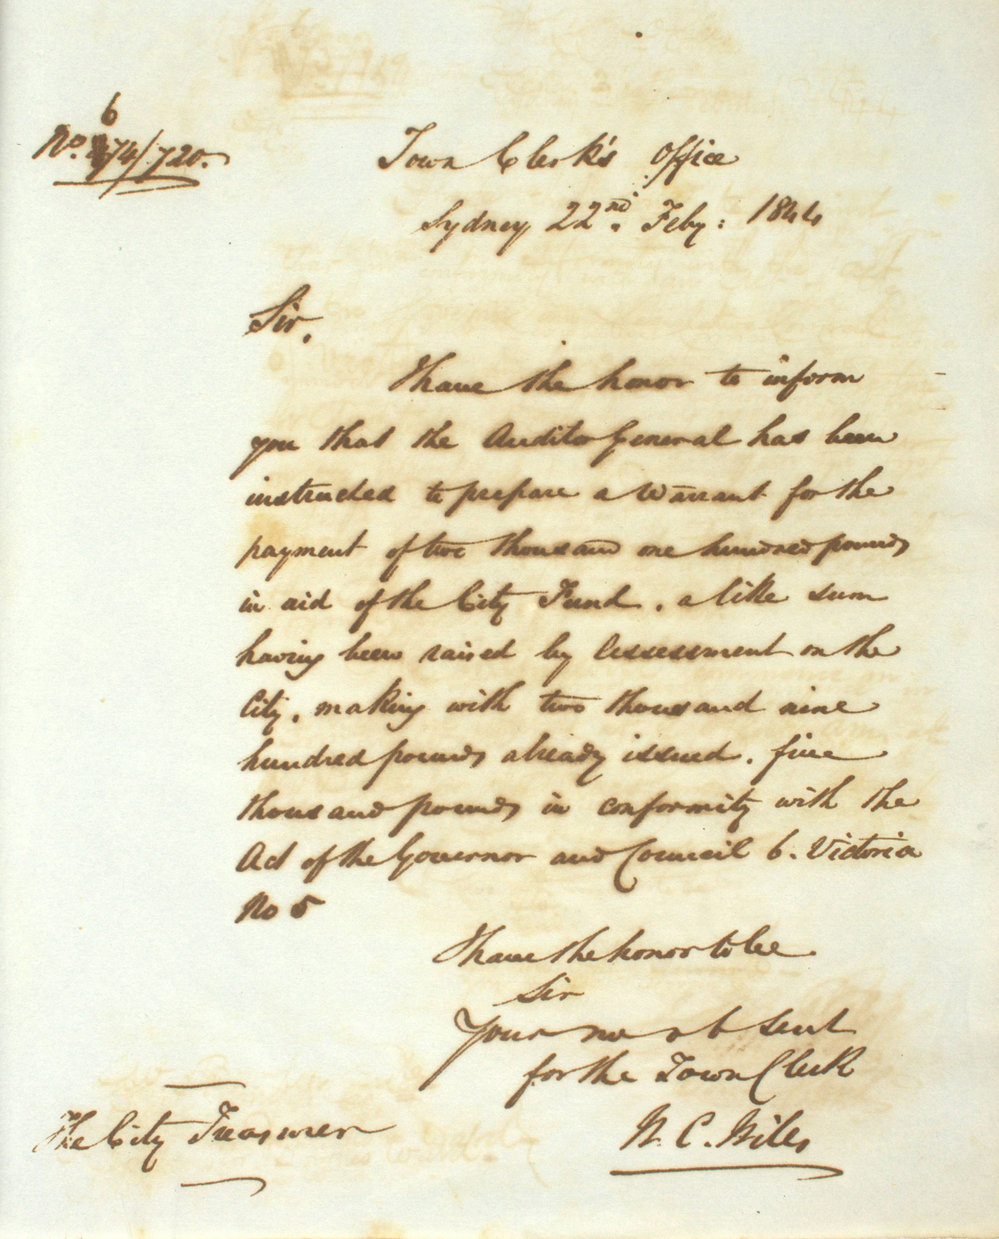 6
No. 74/720.
Town Clerk's Office
Sydney 22nd. Feby: 1844
Sir,
I have the honor to inform
you that the Auditor General has been
instructed to prepare a Warrant for the
payment of two thousand one hundred pounds
in aid of the City Fund, a like sum
having been raised by Assessment on the
City, making with two thousand nine
hundred pounds already issued, five
thousand pounds in conformity with the
Act of the Governor and Council 6. Victoria
No 5
I have the honor to be
Sir
Your mo ob Servt
for the Town Clerk
W. C. Wills
The City Treasurer